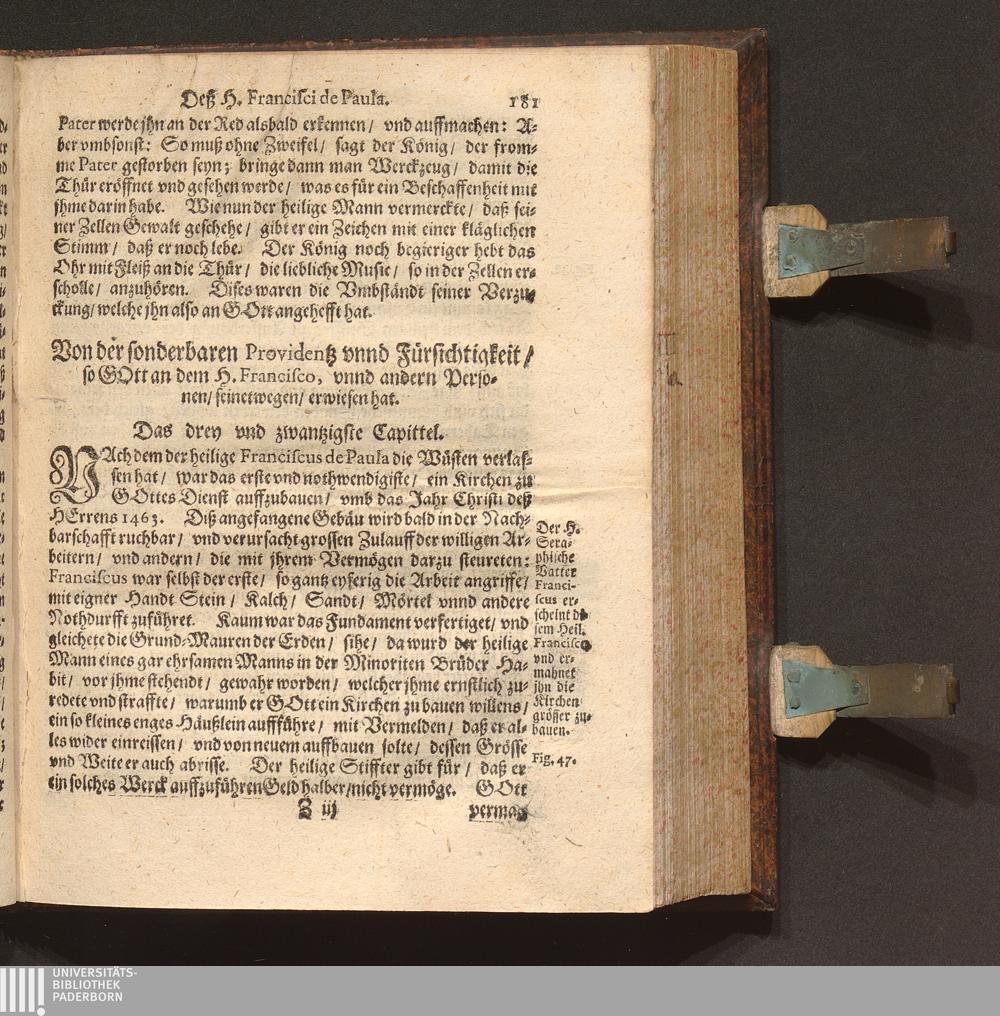 Deß H. Francisci de Paula. 181
Pater werde jhn an der Red alsbald erkennen / vnd auffmachen: A-
ber vmbsonst: So muß ohne Zweifel / sagt der König / der from-
me Pater gestorben seyn; bringe dann man Werckzeug / damit die
Thür eröffnet vnd gesehen werde / was es für ein Beschaffenheit mit
jhme darin habe. Wie nun der heilige Mann vermerckte / daß sei-
ner Zellen Gewalt geschehe / gibt er ein Zeichen mit einer kläglichen
Stimm / daß er noch lebe. Der König noch begieriger hebt das
Ohr mit Fleiß an die Thür / die liebliche Music / so in der Zellen er-
scholle / anzuhören. Dises waren die Vmbständt seiner Verzu-
ckung / welche jhn also an GOtt angehefft hat.
Von der sonderbaren Providentz vnnd Fürsichtigkeit /
so GOtt an dem H. Francisco, vnnd andern Perso-
nen / seinetwegen / erwiesen hat.
Das drey vnd zwantzigste Capittel.
NAch dem der heilige Franciscus de Paula die Wüsten verlas-
sen hat / war das erste vnd nothwendigiste / ein Kirchen zu
GOttes Dienst auffzubauen / vmb das Jahr Christi deß
HErrens 1463. Diß angefangene Gebäu wird bald in der Nach-
barschafft ruchbar / vnd verursacht grossen Zulauff der willigen Ar-
beitern / vnd andern / die mit jhrem Vermögen darzu steureten:
Franciscus war selbst der erste / so gantz eyferig die Arbeit angriffe /
mit eigner Handt Stein / Kalch / Sandt / Mörtel vnnd andere
Nothdurfft zuführet. Kaum war das Fundament verfertiget / vnd
gleichete die Grund-Mauren der Erden / sihe / da wurd der heilige
Mann eines gar ehrsamen Manns in der Minoriten Brüder Ha-
bit / vor jhme stehendt / gewahr worden / welcher jhme ernstlich zu-
redete vnd straffte / warumb er GOtt ein Kirchen zu bauen willens /
ein so kleines enges Häußlein aufführe / mit Vermelden / daß er al-
les wider einreissen / vnd von neuem auffbauen solte / dessen Grösse
vnd Weite er auch abrisse. Der heilige Stiffter gibt für / daß er
ein solches Werck auffzuführen Geld halber / nicht vermöge. GOtt
Z iij vermag
Der H.
Sera-
phische
Vatter
Franci-
scus er-
scheint di-
sem Heil.
Francisco
vnd er-
mahnet
jhn die
Kirchen
grösser zu-
bauen.
Fig. 47.
UNIVERSITÄTS-
BIBLIOTHEK
PADERBORN